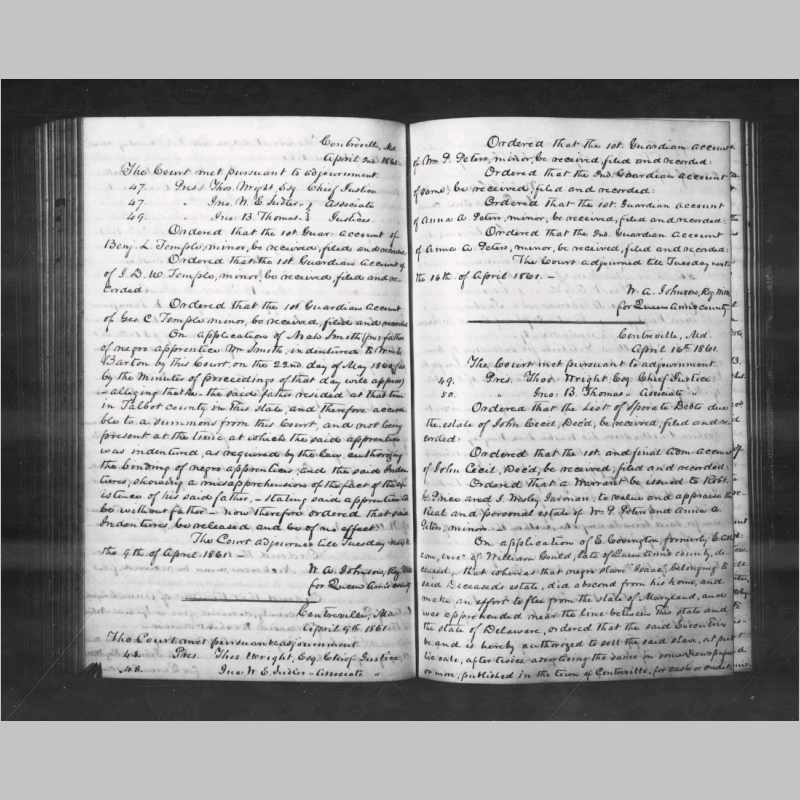 Centreville, Md
April 2nd 1861.
The Court met pursuant to adjournment.
47. Pres. Thos. Wright, Esq. Chief Justice
47. " Jno. W. E. Sudler } Associate
49. " Jno. B. Thomas } Justices.
Ordered that the 1st. Guar. account of
Benj. L. Temple, minor, be received, filed and recorded
Ordered that the 1st. Guardian Account of
of J. D. W. Temple, minor, be received filed and re-
corded.
Ordered that the 1st Guardian Account
of Geo. C. Temple minor, be received, filed and recorded
On application of Smith father
of negro apprentice Wm Smith, indentured to
Barton by this Court on the 22nd day of May 1860,
by the Minutes of proceedings of that day will appear)
- alleging that he the said father resided at that time
in Talbot county in this State, and therefore access-
ble to a summons from this Court, and not being
present at the time at which the said apprentice
was indentured, as required by the law authorizing
the binding of negro apprentices; and the said Inden-
tures, showing a misapprehension of the fact of the ex-
istence of his said father, - stating said apprentice to
be without father - now therefore ordered that said
Indentures be released and be of no effect.
The Court adjourned till Tuesday next
the 9th of April 1861. -
W. A. Johnson, Reg. Wills
for Queen Ann's county
Centreville, Md.
April 9th 1861.
The Court met pursuant adjournment
48. Pres. Thos. Wright, Esq. Chief Justice,
48. Jno. W. E. Sudler - Associate "
Ordered that the 1st. Guardian account
of Wm P. Peters, minor, be received, filed and recorded.
Ordered that the 2nd. Guardian account
of same; be received, filed and recorded.
Ordered that the 1st. Guardian account
of Anna A. Peters, minor, be received, filed and recorded.
Ordered that the 2nd. Guardian account
of Anna A. Peters, minor, be received, filed and recorded.
The Court adjourned till Tuesday next
the 16th of April 1861. -
W. A. Johnson, Reg. Wills
for Queen Ann's county
Centreville, Md.
April 16th 1861.
The Court met pursuant to adjournment.
49. Pres. Thos. Wright, Esq. Chief Justice
50. " Jno. B. Thomas " Associate "
Ordered that the List of Sperate Debts due
the estate of John Cecil, Dec'd, be received, filed and re-
corded.
Ordered that the 1st. and final Adm. account
of John Cecil, Dec'd, be received; filed and recorded.
Ordered that a Warrant be issued to
and J. Wesly Jarman, to value and appraise the
Real and personal estate of Wm P. Peters and Anna A.
Peters, minors.
On application of E. Covington, formerly E.
of William Guild, late of Queen Ann's county, de-
ceased, that whereas that negro slave 'Isaac,' belonging to
said Deceased's estate, did abscond from his home, and
make an effort to flee from the State of Maryland, and
was apprehended near the line between this State and
the State of Delaware, ordered that the said Executrix
be and is hereby authorized to sell the said slave, at pub-
lic sale, after twice advertising the same in some Newspaper
or more, published in the town of Centreville, for cash or